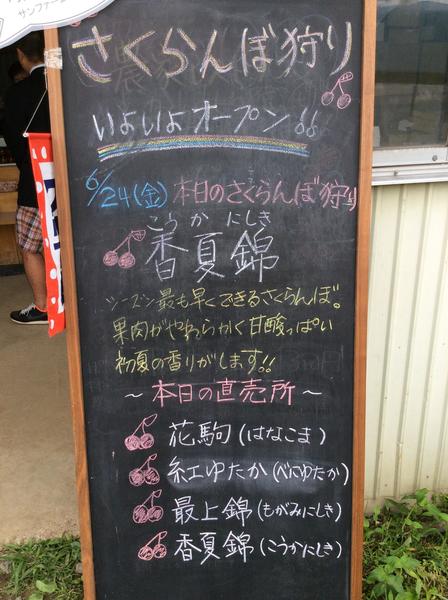 サンファーム
さくらんぼ狩り
いよいよオープン!!
6/24(金) 本日のさくらんぼ狩り
こうか にしき
香夏錦
シーズン最も早くできるさくらんぼ。
果肉がやわらかく甘酸っぱい
初夏の香りがします!!
～本日の直売所～
花駒(はなこま)
紅ゆたか(べにゆたか)
最上錦(もがみにしき)
香夏錦(こうかにしき)